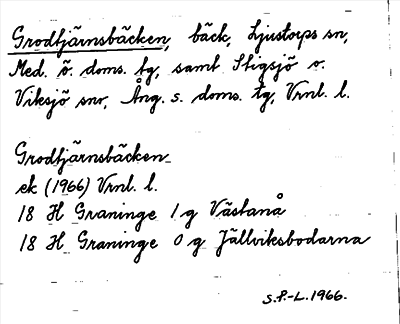 Grodtjärnsbäcken, bäck, Ljustorps sn,
Med. ö. doms. tg, samt Stigsjö o.
Viksjö snr, Ång. s. doms. tg, Vrnl. l.
Grodtjärnsbäcken
ek (1966) Vrnl. l.
18 H Graninge 1 g Västanå
18 H Graninge 0 g Jällviksbodarna
S.P.-L. 1966.